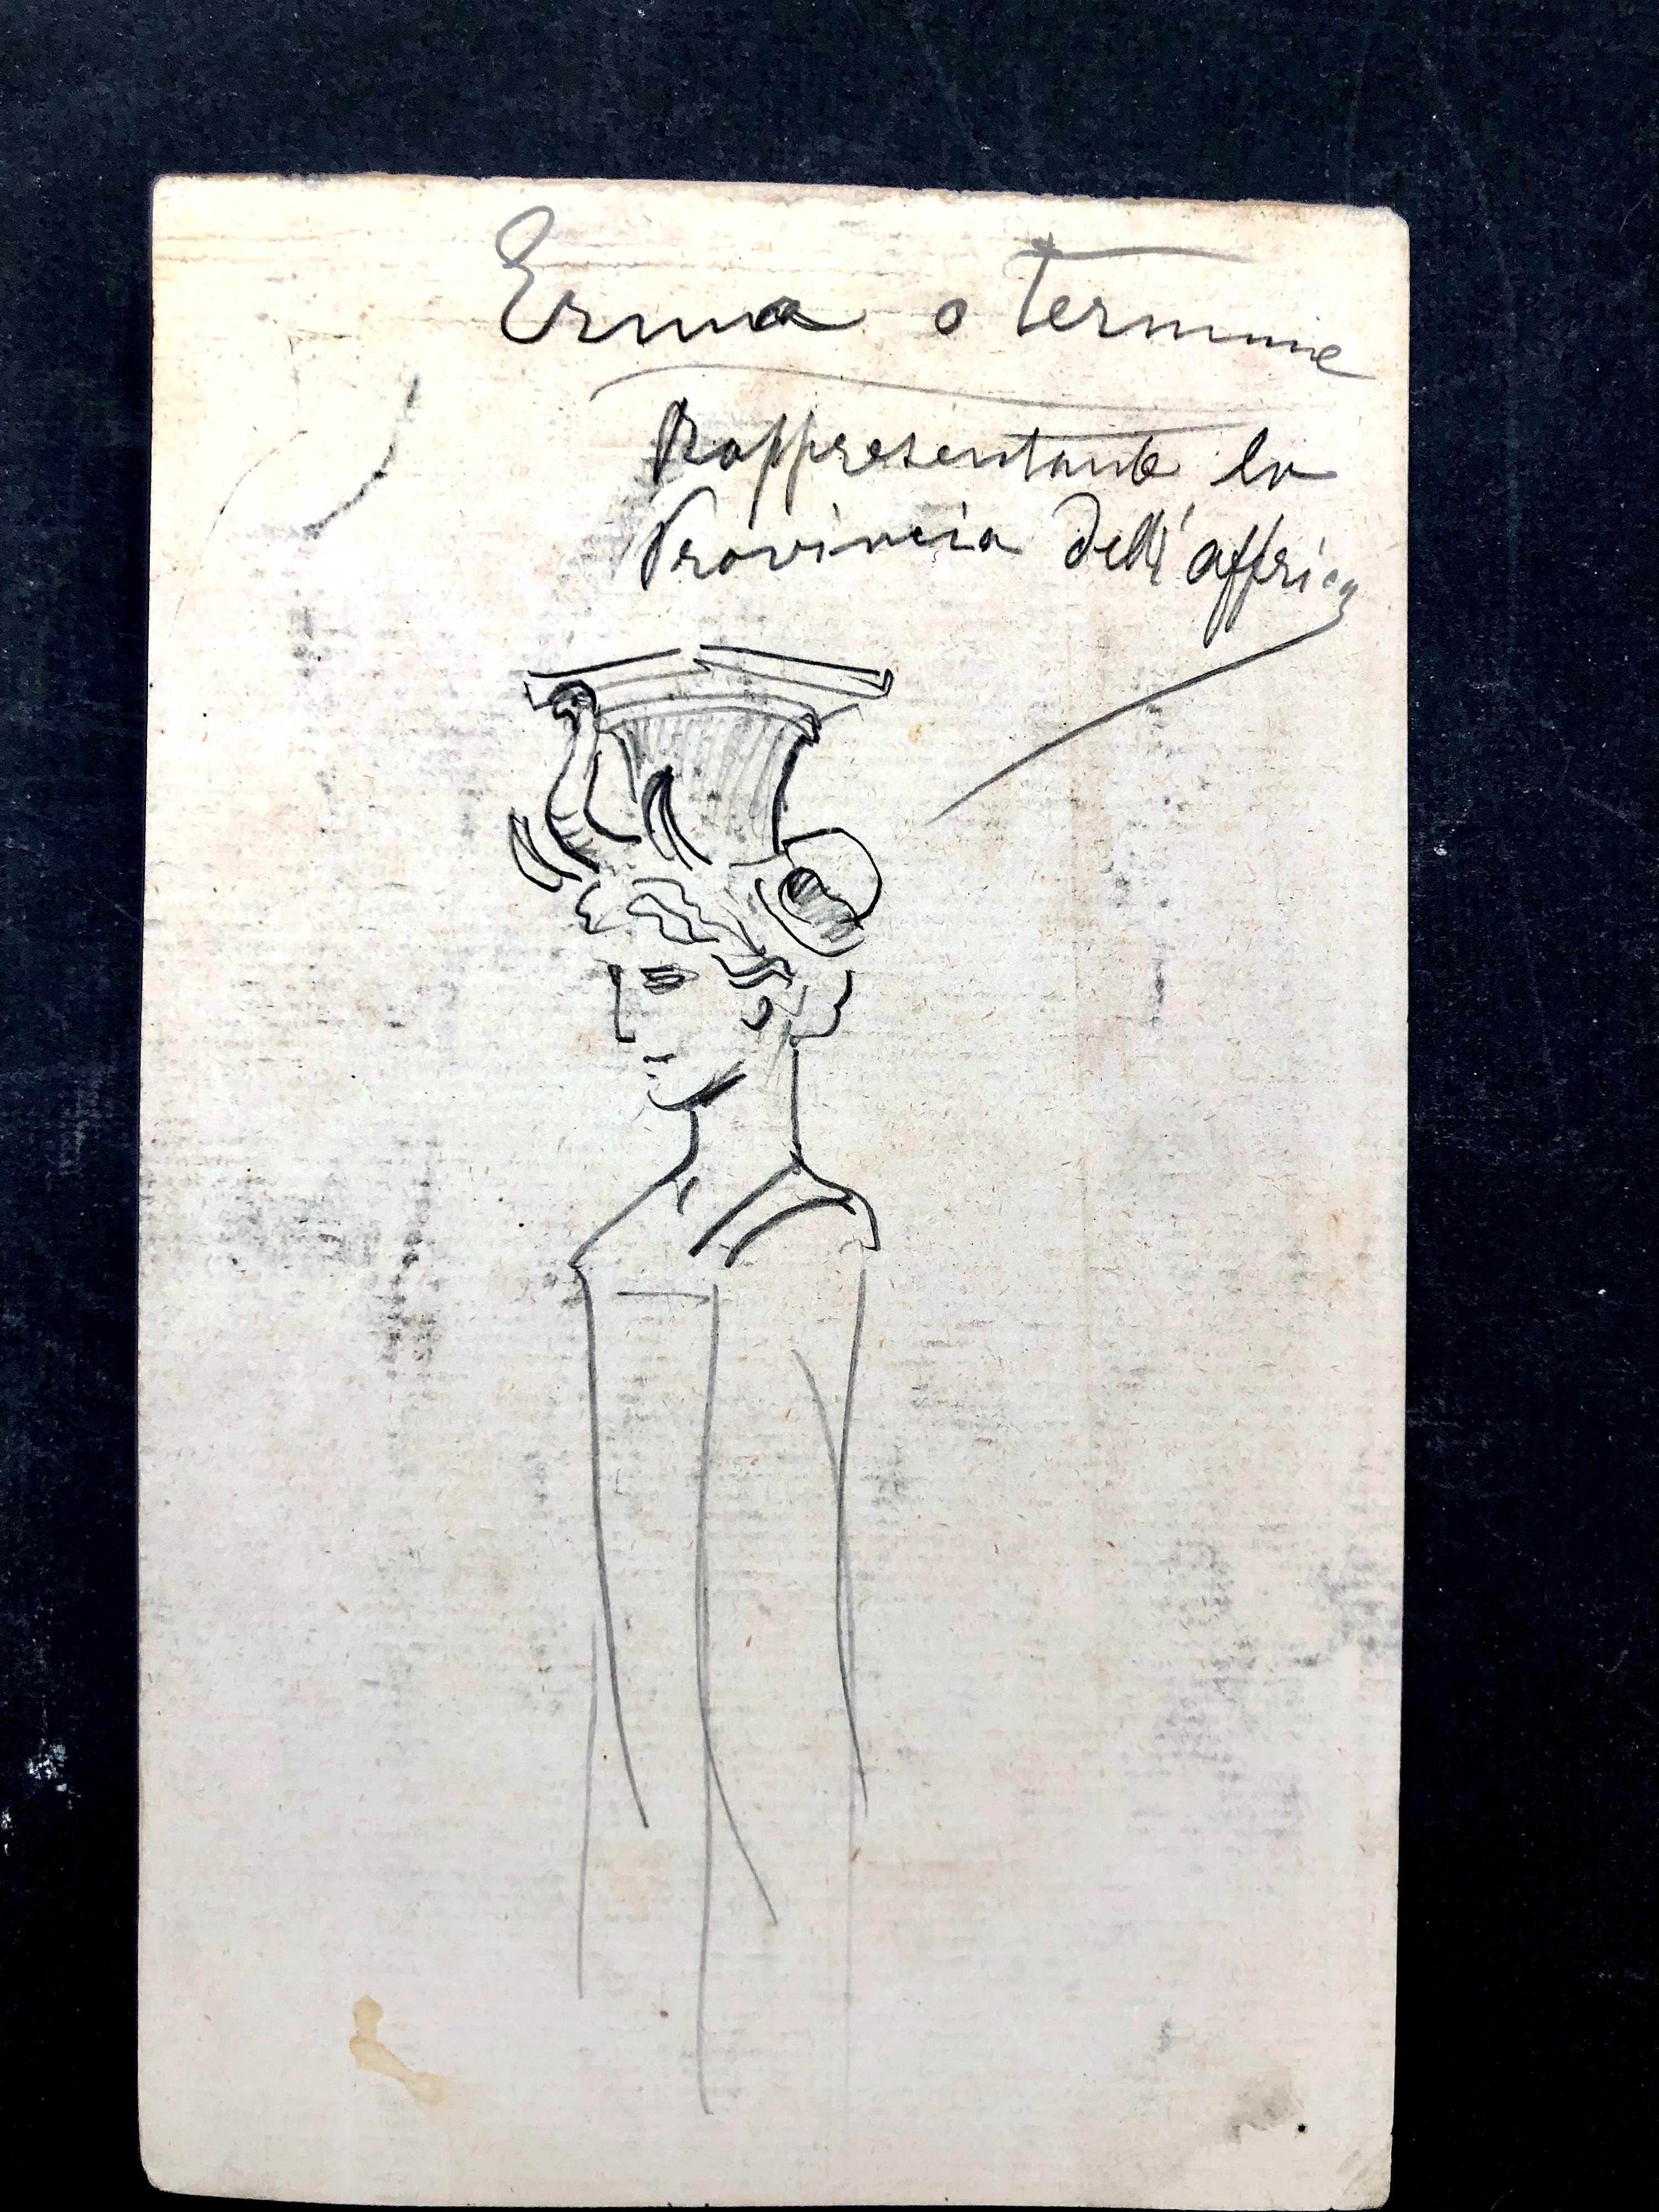 Erma o termine
Rappresentante la
Provincia dell'affrica